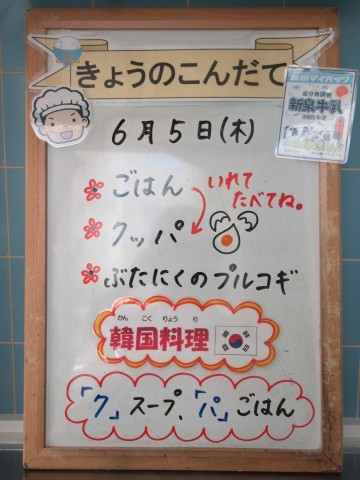 きょうのこんだて
成分無調整
新泉牛乳
6月5日(木)
ごはん
いれて
たべてね。
クッパ
ぶたにくのプルコギ
かんこくりょうり
韓国料理
「ク」スープ、「パ」ごはん